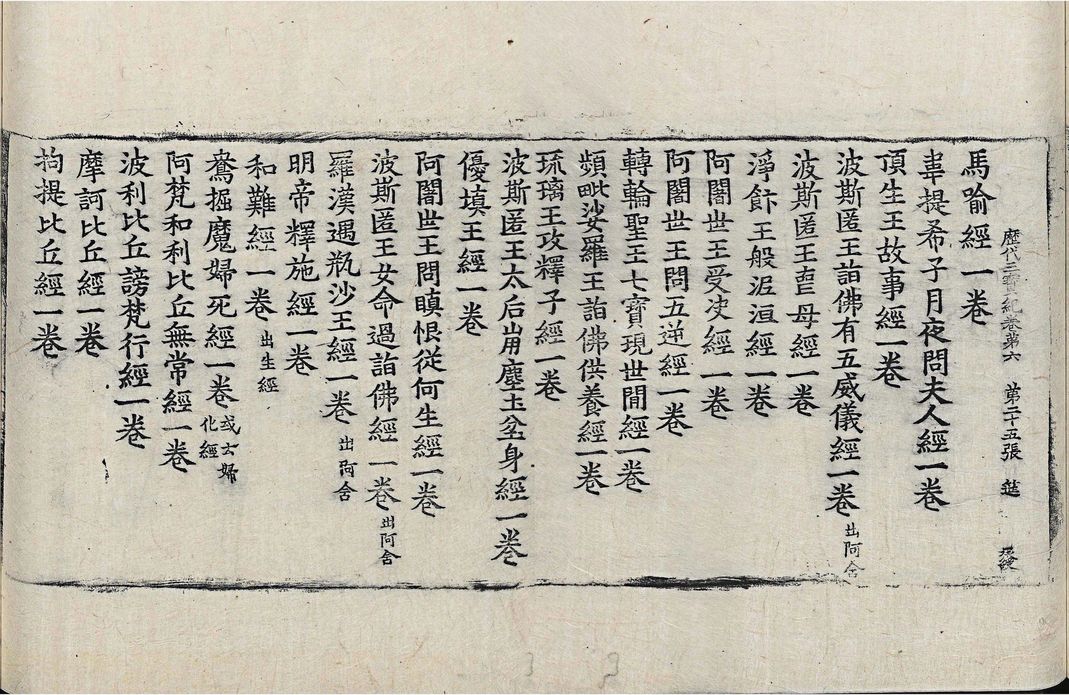 歷代三寶紀卷第六 第二十五張
馬喻經一卷
韋提希子月夜問夫人經一卷
頂生王故事經一卷
波斯匿王詣佛有五威儀經一卷 出阿含
波斯匿王喪母經一卷
淨飰王般泥洹經一卷
阿闍世王受决經一卷
阿闍世王問五逆經一卷
轉輪聖王七寶現世間經一卷
頻毗娑羅王詣佛供養經一卷
琉璃王攻釋子經一卷
波斯匿王太后崩塵土坌身經一卷
優填王經一卷
阿闍世王問瞋恨從何生經一卷
波斯匿王女命過詣佛經一卷 出阿含
羅漢遇瓶沙王經一卷 出阿含
明帝釋施經一卷
和難經一卷 出生經
鴦掘魔婦死經一卷 或云婦化經
阿梵和利比丘無常經一卷
波利比丘謗梵行經一卷
摩訶比丘經一卷
拘提比丘經一卷